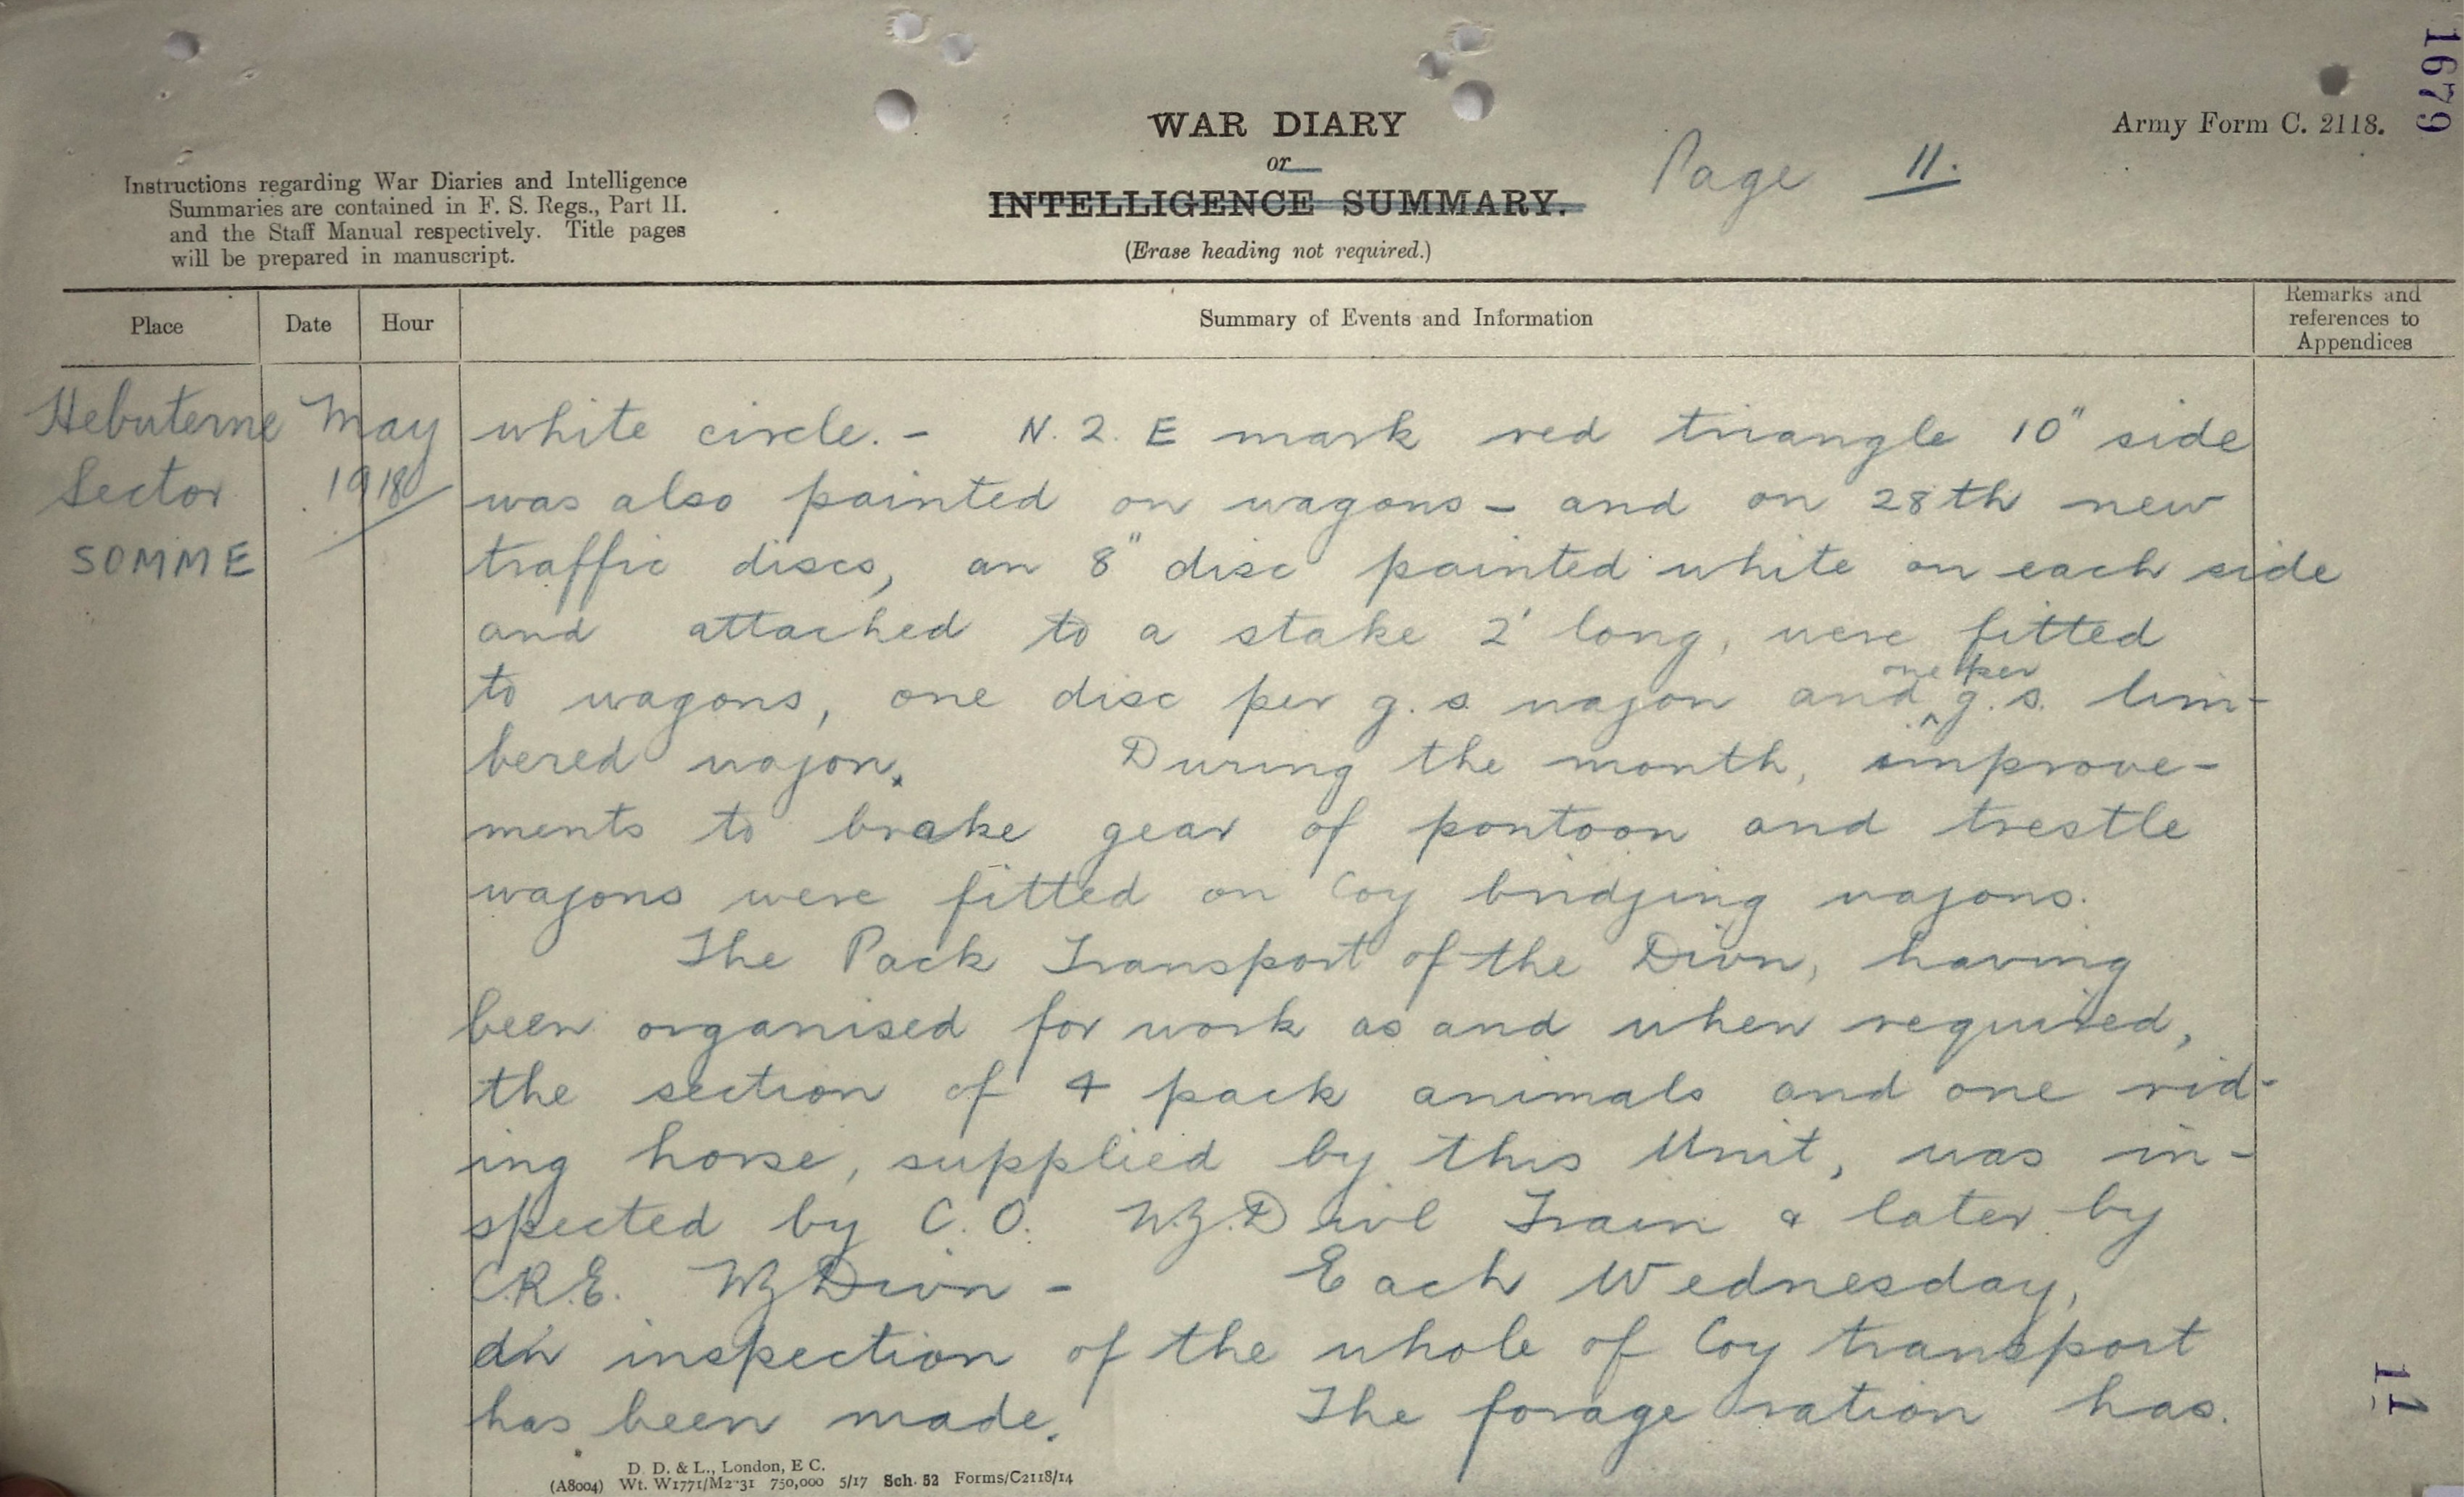 1679
WAR DIARY
or
INTELLIGENCE SUMMARY.
(Erase heading not required.)
Page 11.
Army Form C. 2118.
Instructions regarding War Diaries and Intelligence
Summaries are contained in F. S. Regs., Part II.
and the Staff Manual respectively. Title pages
will be prepared in manuscript.
Place Date Hour Summary of Events and Information Remarks and references to Appendices
Hebuterne May
Sector 1918
SOMME
white circle. - N. Z. E mark red triangle 10" side
was also painted on wagons - and on 28th new
traffic discs, an 8" disc painted white on each side
and attached to a stake 2' long, were fitted
to wagons, one disc per g.s. wagon and one per g.s. lim-
bered wagon. During the month, improve-
ments to brake gear of pontoon and trestle
wagons were fitted on Coy bridging wagons.
The Pack Transport of the Divn, having
been organised for work as and when required,
the section of 4 pack animals and one rid-
ing horse, supplied by this Unit, was in-
spected by C. O. N.Z. Divl Train & later by
C.R.E. NZ Divn - Each Wednesday,
an inspection of the whole of Coy transport
has been made. The forage ration has.
11
D. D. & L., London, E C.
(A8004) Wt. W1771/M2 31 750,000 5/17 Sch. 52 Forms/C2118/14